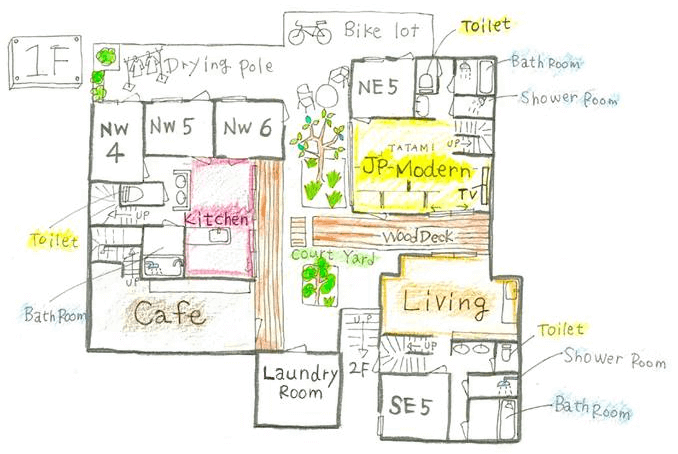 1F
Bike lot
Toilet
Drying pole
Bath Room
NE 5
Shower Room
NW
4
NW 5
NW 6
TATAMI
UP
JP-Modern
TV
Kitchen
UP
Toilet
Wood Deck
Court Yard
UP
Bath Room
Cafe
Living
UP
2F
UP
Toilet
Shower Room
Laundry
Room
SE 5
Bath Room